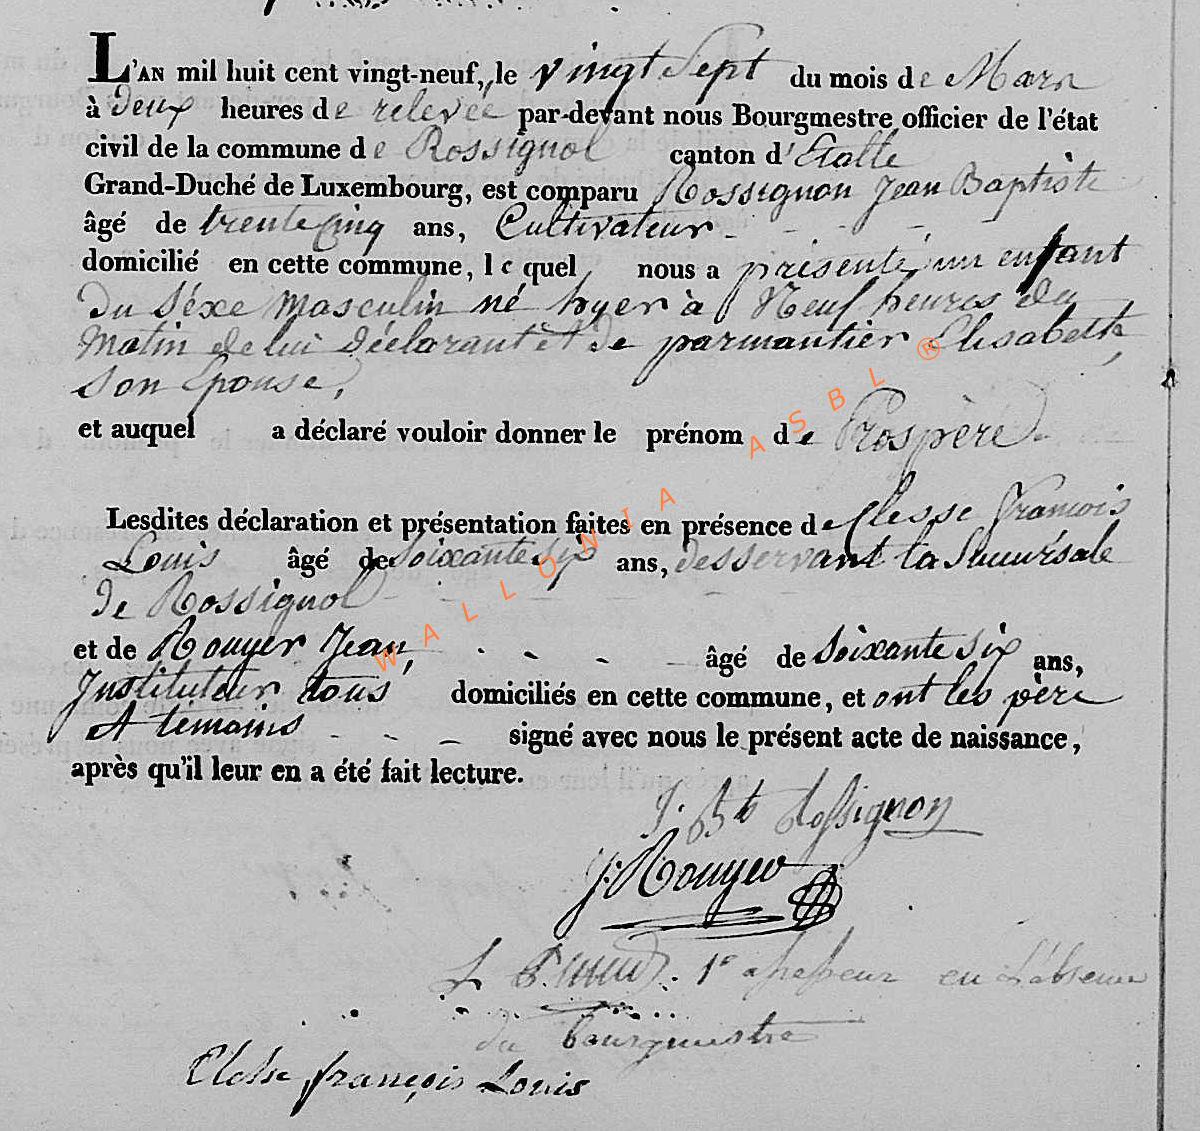 L'AN mil huit cent vingt-neuf, le vingt Sept du mois de Mars
à deux heures de relevée par-devant nous Bourgmestre officier de l'état
civil de la commune de Rossignol canton d'Etalle
Grand-Duché de Luxembourg, est comparu Rossignon Jean Baptiste
âgé de trente Cinq ans, Cultivateur
domicilié en cette commune, lequel nous a présenté un enfant
du Séxe masculin né hyer à Neuf heures du
Matin de lui déclarant et de parmantier Elisabeth
Son Epouse,
et auquel a déclaré vouloir donner le prénom de Prospère
Lesdites déclaration et présentation faites en présence de Clesse François
Louis âgé de Soixante Six ans, desservant la Succursale
de Rossignol
et de Rouyer Jean, âgé de Soixante Six ans,
Instituteur tous domiciliés en cette commune, et ont les père
et temoins signé avec nous le présent acte de naissance,
après qu'il leur en a été fait lecture.
J. Bte Rossignon
J. Rouyer
1e assesseur en l'absence
du bourgmestre
Clesse françois Louis
WALLONIA ASBL ®